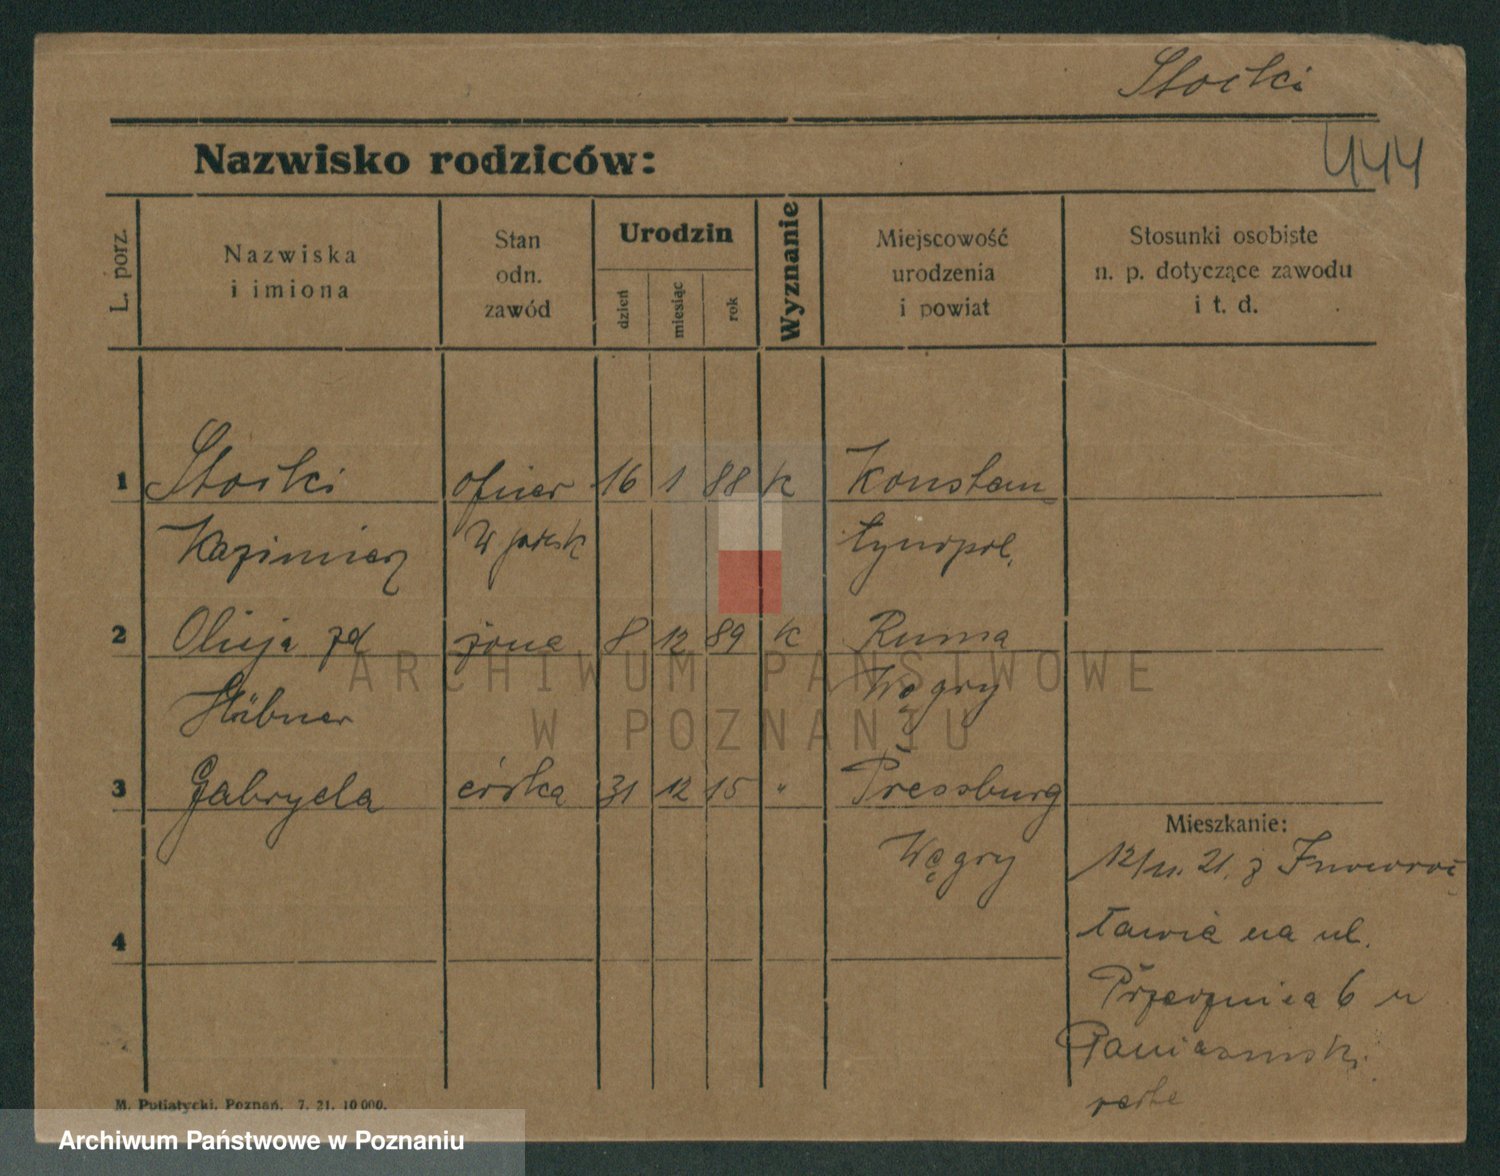 Stocki
444
Nazwisko rodziców:
L. porz.
Nazwiska
i imiona
Stan
odn.
zawód
Urodzin
dzień
miesiąc
rok
Wyznanie
Miejscowość
urodzenia
i powiat
Stosunki osobiste
n. p. dotyczące zawodu
i t. d.
1 Stocki oficer 16 1 88 k Konstan
Kazimierz W. polsk tynopol.
2 Olicja zd żona 8 12 89 k Ruma
Hübner Węgry
3 Gabryela córka 31 12 15 " Pressburg
Węgry
Mieszkanie:
12/11. 21. z Inowroc
ławia na ul.
4
Przecznica 6 u
ARCHIWUM PAŃSTWOWE
W POZNANIU
M. Putiatycki, Poznań. 7. 21. 10 000.
Archiwum Państwowe w Poznaniu